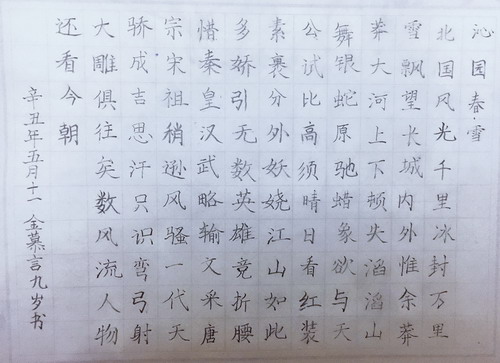 沁园春·雪
北国风光千里冰封万里
雪飘望长城内外惟余莽
莽大河上下顿失滔滔山
舞银蛇原驰蜡象欲与天
公试比高须晴日看红装
素裹分外妖娆江山如此
多娇引无数英雄竞折腰
惜秦皇汉武略输文采唐
宗宋祖稍逊风骚一代天
骄成吉思汗只识弯弓射
大雕俱往矣数风流人物
还看今朝
辛丑年五月十一 金慕言九岁书